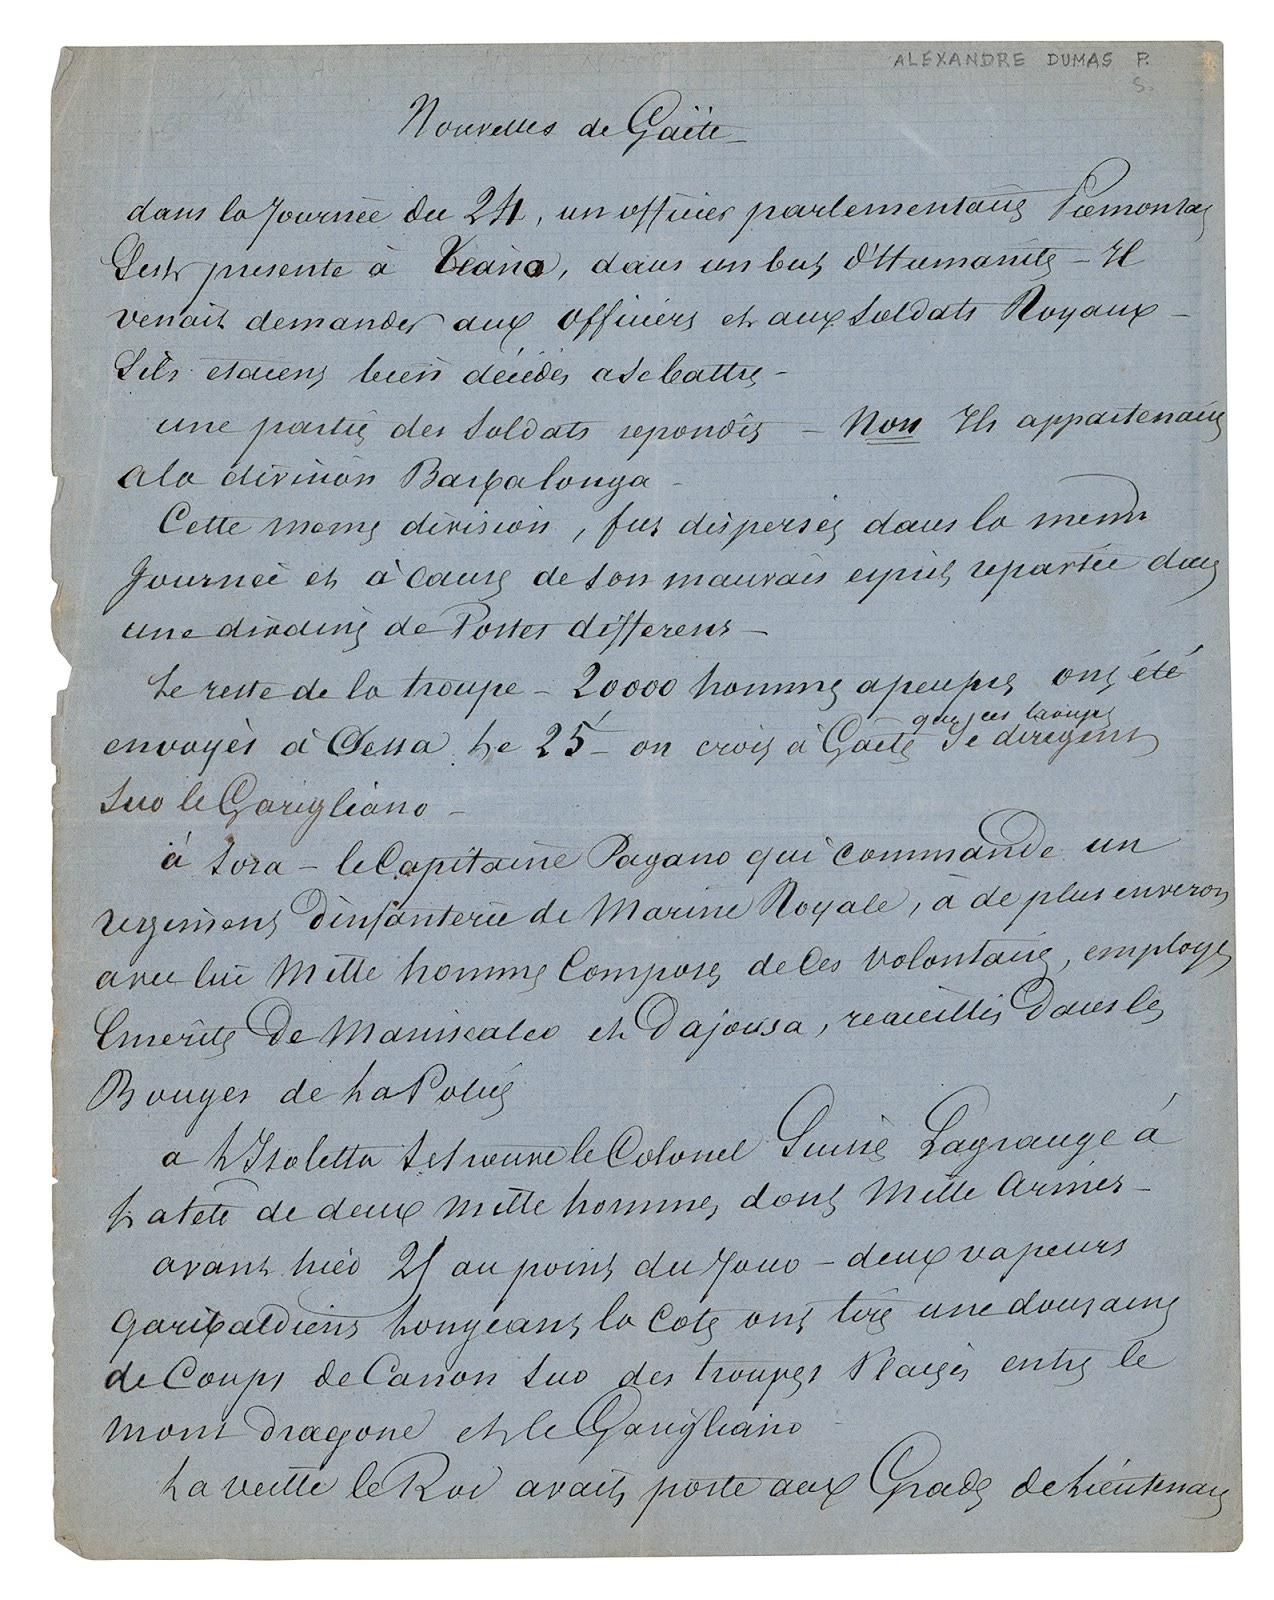 ALEXANDRE DUMAS P.
S.
Nouvelles de Gaëte
dans la Journée du 24, un officier parlementaire Piemontais
S'est presente à Teano, dans un but d'Humanité – Il
venait demander aux officiers et aux Soldats Royaux –
S'ils etaient bien décidés a se battre –
une partie des Soldats repondit – Non Ils appartenaient
a la division Barbalonga –
Cette meme division, fut dispersée dans la meme
Journée et à cause de son mauvais esprit repartie dans
une dixaine de Postes differents –
Le reste de la troupe – 20000 hommes apeupres ont été
envoyés à Sessa Le 25 – on croit à Gaëte que ces troupes Se dirigent
Sur le Garigliano –
à Sora – le Capitaine Pagano qui commande un
regiment d'infanterie de Marine Royale, à de plus environ
avec lui Mille hommes Composés de Ces volontaires, employés
Emerites De Maniscalco et Dajossa, recueillis Dans les
Bouges de La Police
a L'Isoletta Se trouve le Colonel Suisse Lagrange à
La tete de deux Mille hommes, dont Mille Armés –
avant hier 25 au point du Jour – deux vapeurs
Garibaldiens Longeant la Cote ont tiré une douzaine
de Coups de Canon Sur des troupes Placés entre le
Mont dragone et le Garigliano –
La veille le Roi avait porté aux Grade de Lieutenant